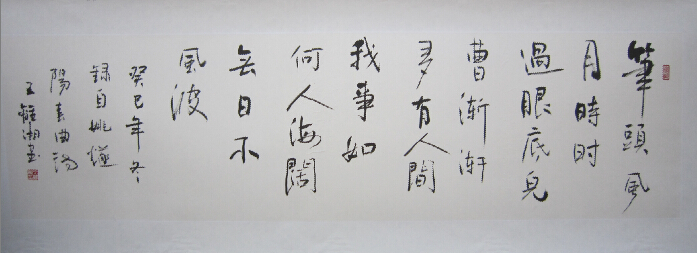 筆頭風
月時時
過眼底兒
曹漸漸
多有人問
我事如
何人海闊
無日不
風波
癸巳年冬
錄自姚燧
陽春曲
王湘書